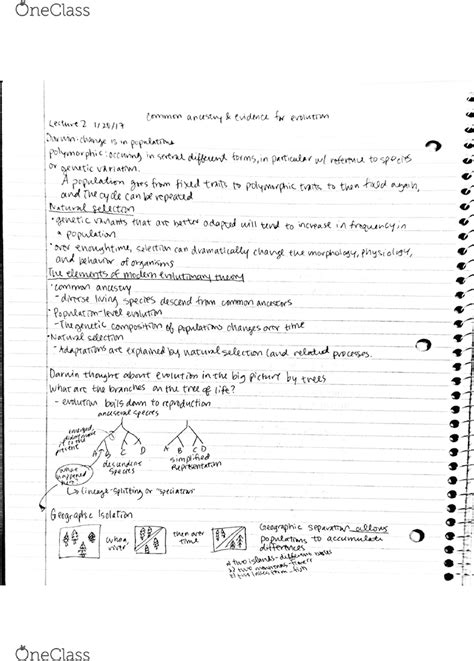 OneClass
common ancestry & evidence for evolution
Lecture 2 1/20/17
Darwin: change is in populations
polymorphic: occuring in several different forms, in particular w/ reference to species
or genetic variation.
A population goes from fixed traits to polymorphic traits to then fixed again,
and the cycle can be repeated
Natural selection
• genetic variants that are better adapted will tend to increase in frequency in
a population
• over enough time, selection can dramatically change the morphology, physiology,
and behavior of organisms
The elements of modern evolutionary theory
• common ancestry
- diverse living species descend from common ancestors
• Population-level evolution
- The genetic composition of populations changes over time
• Natural selection
- Adaptations are explained by natural selection (and related processes.
Darwin thought about evolution in the big picture by trees
What are the branches on the tree of life?
- evolution boils down to reproduction
ancestral species
to the
present
A B C D
A B C D
descendent
species
simplified
Representation
what
happened
here?
↳ lineage-splitting or "speciation"
Geographic Isolation
when,
river
then over
time
Geographic separation allows
populations to accumulate
differences
1) two islands-different
2) two mountains-
OneClass